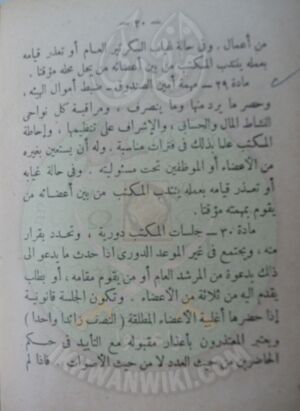 — ٢٠ —
من أعمال . وفى حالة غياب السكرتير العام أو تعذر قيامه
بعمله ينتدب المكتب من بين أعضائه من يحل محله مؤقتا .
مادة ٢٩ — مهمة أمين الصندوق ضبط أموال الهيئة ،
وحصر ما يرد منها وما ينصرف ، ومراقبة كل نواحى
النشاط المالى والحسابى ، والإشراف على تنظيمها ، وإحاطة
المكتب علما بذلك فى فترات مناسبة . وله أن يستعين بغيره
من الأعضاء أو الموظفين تحت مسئوليته . وفى حالة غيابه
أو تعذر قيامه بعمله ينتدب المكتب من بين أعضائه من
يقوم بمهمته مؤقتا .
مادة ٣٠ — جلسات المكتب دورية ، وتحدد بقرار
منه ، ويجتمع فى غير الموعد الدورى إذا حدث ما يدعو الى
ذلك بدعوة من المرشد العام أو من يقوم مقامه ، أو بطلب
يقدم اليه من ثلاثة من الأعضاء . وتكون الجلسة قانونية
إذا حضرها أغلبية الأعضاء المطلقة ( النصف زائدا واحدا )
ويعتبر المعتذرون بأعذار مقبولة مع التأييد فى حكم
الحاضرين من حيث العدد لا من حيث الأصوات . فاذا لم
IKHWANWIKI.COM